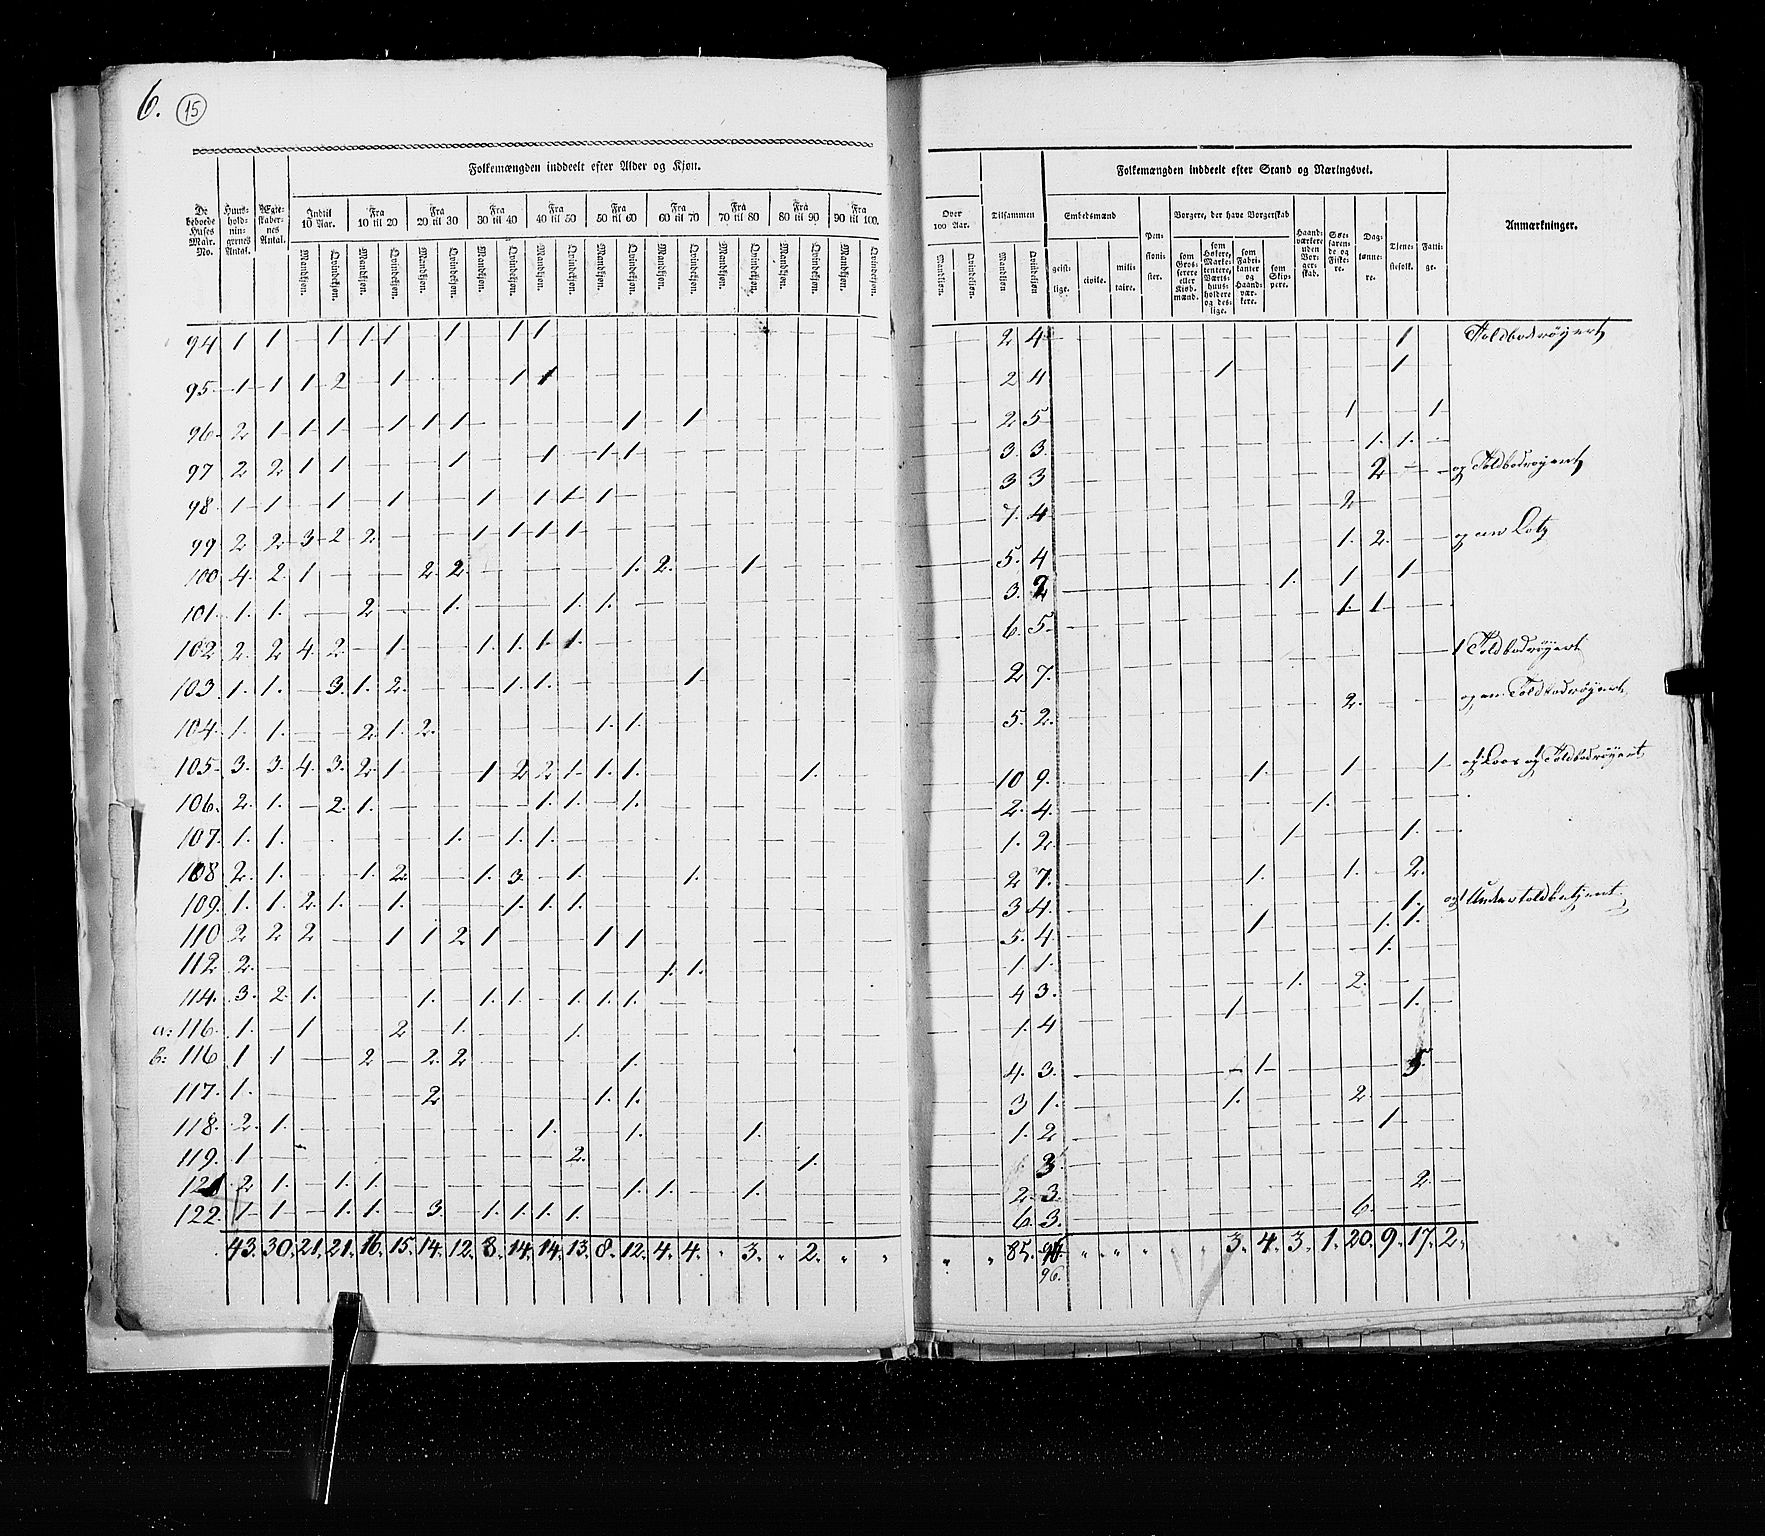 6. 15
Folkemængden inddeelt efter Alder og Kjøn.
De beboede Huses Matr. No. Huus-hold-nin-gernes Antal. Ægte-skaber-nes Antal. Indtil 10 Aar. Fra 10 til 20 Fra 20 til 30 Fra 30 til 40 Fra 40 til 50 Fra 50 til 60 Fra 60 til 70 Fra 70 til 80 Fra 80 til 90 Fra 90 til 100.
Mandkjøn. Qvindekjøn. Mandkjøn. Qvindekjøn. Mandkjøn. Qvindekjøn. Mandkjøn. Qvindekjøn. Mandkjøn. Qvindekjøn. Mandkjøn. Qvindekjøn. Mandkjøn. Qvindekjøn. Mandkjøn. Qvindekjøn. Mandkjøn. Qvindekjøn. Mandkjøn. Qvindekjøn.
Folkemængden inddeelt efter Stand og Næringsvei.
Over 100 Aar. Tilsammen Embedsmænd Pen-sioni-ster. Borgere, der have Borgerskab Haand-værkere uden Bor-ger-skab. Søe-faren-de og Fiske-re. Dag-lønne-re. Tiene-stefolk. Fatti-ge. Anmærkninger.
Mandkjøn Qvindekjøn. Mandkjøn Qvindekjøn geist-lige. civile. mili-taire. som Gros-serere eller Kjøb-mænd. som Høkere, Marke-tentere, Værts-huus-holdere og des-lige. som Fabri-kanter og Haand-vær-kere. som Skip-pere.
94 1 1 – 1 1 1 – 1 – 1 1 2 4 1 Toldbodrøyert
95 1 1 1 2 – 1 – – – 1 1 2 4 1 1
96 2 1 1 1 – 1 1 1 1 – 1 2 5 1 1
97 2 2 1 1 – – – 1 – – 1 – 1 1 3 3 1. 1. og Toldbodrøyert
98 1 1 – 1 – 1 – – 1 – 1 1 1 3 3 2
99 2 2 3 2 2 – – – 1 1 1 1 7. 4 2 og en Lots
100 4. 2. 1 – – – 2 2. 1. 2. – – 1 5. 4 1. 2.
101. 1. 1. – – 2 – – 1. – – – 1. 1. 3. 2 1. 1 1
102 2. 2 4. 2. – 1. – – 1. 1. 1. 1. 6. 5. 1. 1.
103 1. 1. – 3. 1. 2. – – – 1. 1. 1 2 7. 1 Toldbodrøyert
104. 1. 1. – – 2. 1. 2. 1. 1. 5. 2. 2. og en Toldbodrøyert
105. 3. 3. 4. 3. 2 1. – – 1 2 2 1. 1. 1. 1. 10 9. 1. 1 1 og 1 Loos og 1 Toldbodrøyert
106. 2. 1. – 2. 1. 1. 1. – 1. 2. 4. 1.
107. 1. 1. 1. – 1. 1. 1. 2. 1 1.
108 2. 1. – – 1. 2. – – 1. 3. – 1. 1. 2 7. 1. 1. 2.
109. 1. 1. 2. 1. – 1. – – – 1. 1. 1. 3 4. 1. og 1 Undertoldbetjent
110 2 2 2 – – 1 1 2 1 – – – 1 1 5. 4. 1 1. 1.
112 2. 1. 1. 1 1. 1.
114. 3. 2. 1. 1. – 1. 1. – 1. 1. 1. 4 3. 1. 2.
a: 116. 1. – 1 – – 2 – 1. 1. 1. 4 1 1.
b: 116 1 1 – – 2 – 2. 2 1. 4. 3. 1 5.
117. 1. 2 1. 1. 3 1. 1. 2
118. 2. 1. 1. 1. 1. 1. 2 1
119. 1 2. 1. 3
121 2 1. – 1. 1. 1. 1. 1. 2 3. 2.
122. 1 1 – 1. 1. – 3. – 1. 1. 1. 1. 6. 3. 6.
43. 30. 21. 21. 16. 15. 14. 12. 8. 14. 14. 13. 8. 12. 4. 4. " 3. " 2. " " " " 85. " " " " " " 3. 4. 3. 1. 20. 9. 17. 2.
96.